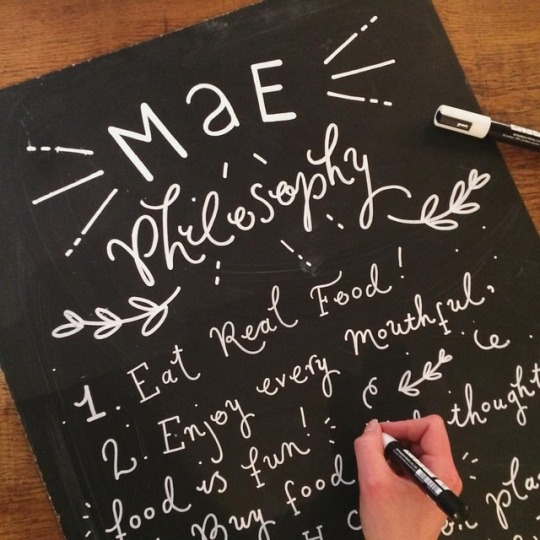 MaE
philosophy
1. Eat Real Food!
2. Enjoy every mouthful,
food is fun!
Buy food thought